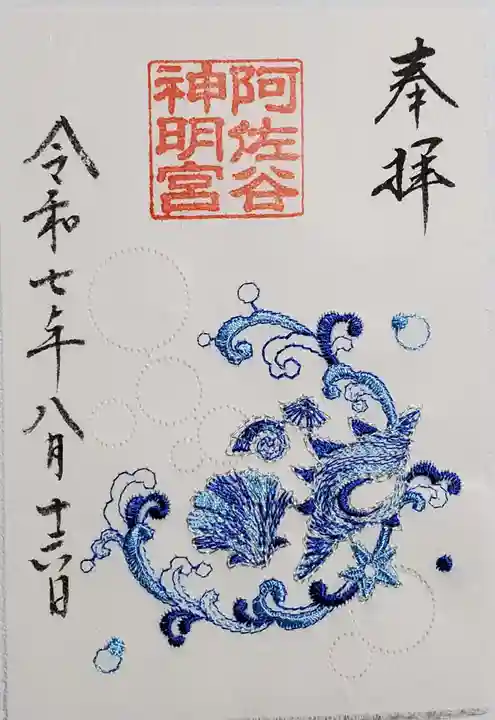 奉拝
阿佐谷
神明宮
令和七年八月十六日